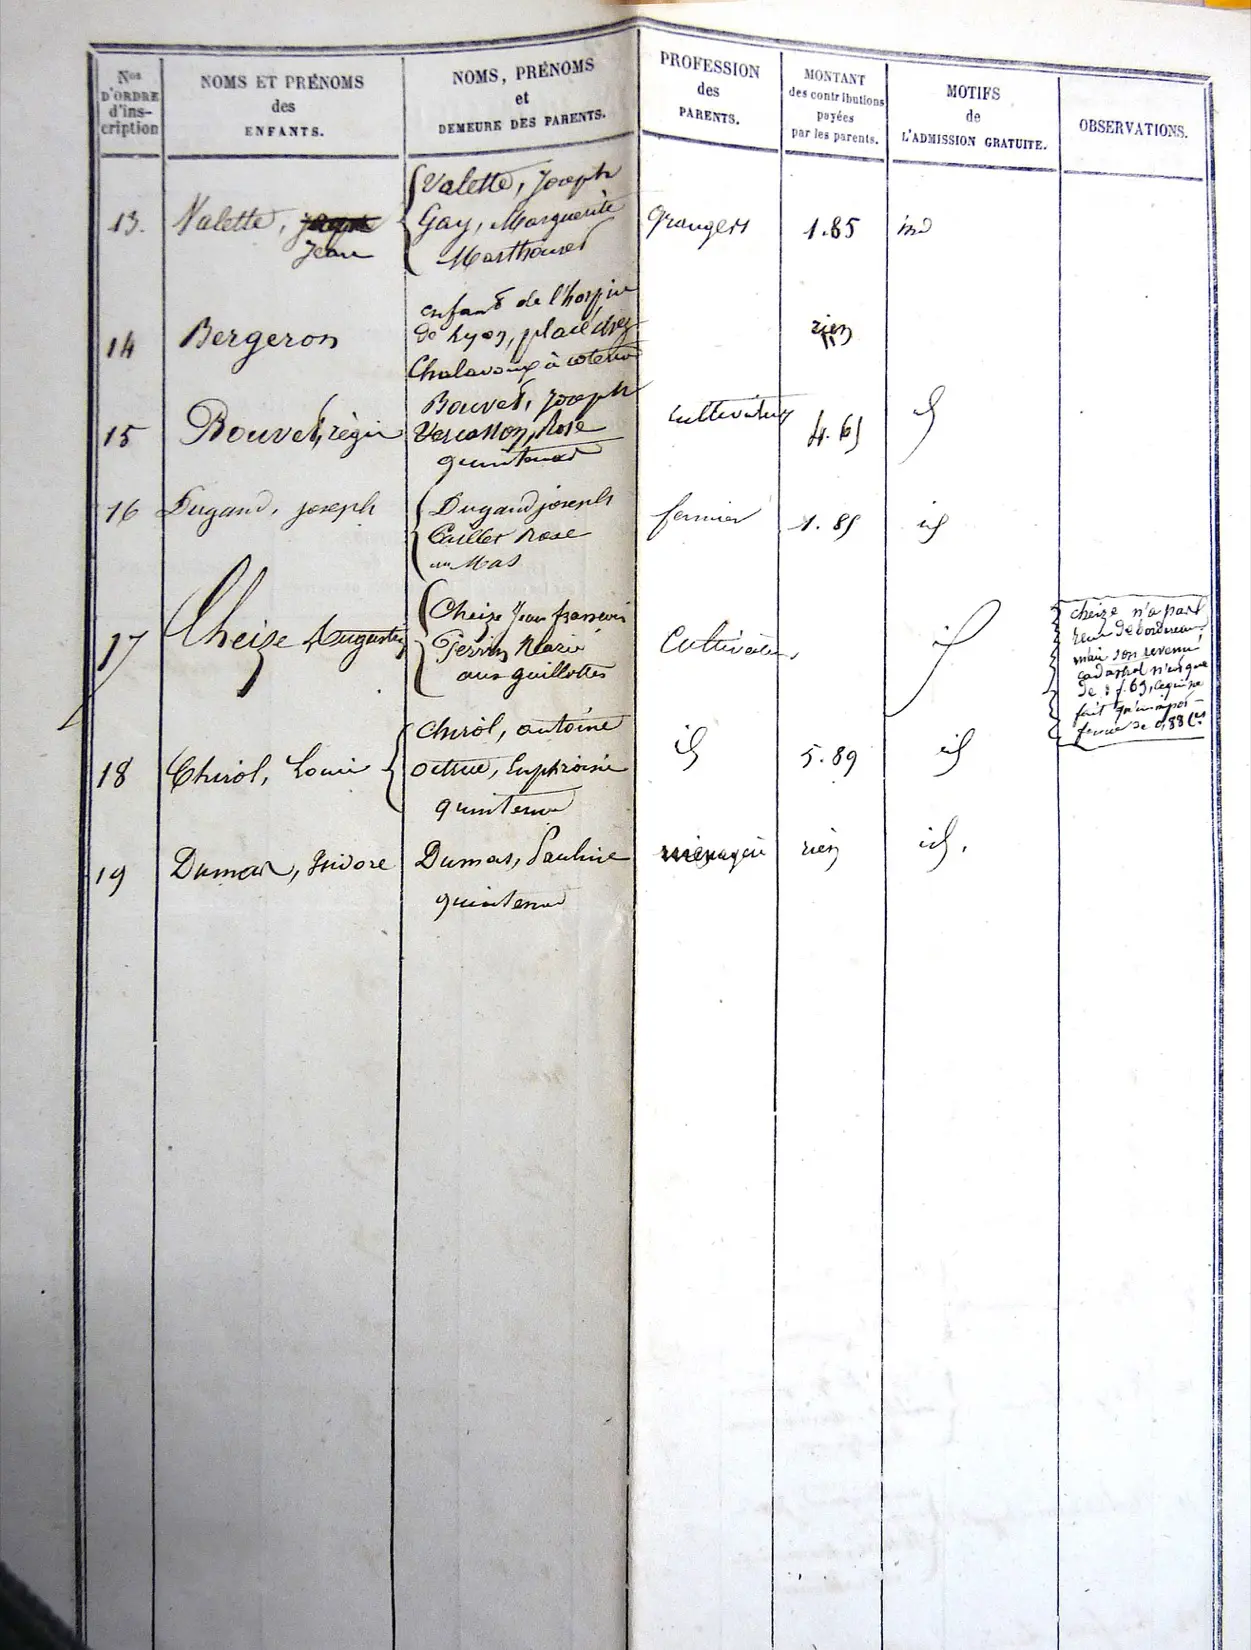 Nos
D'ORDRE
d'ins-
cription
NOMS ET PRÉNOMS
des
ENFANTS.
NOMS, PRÉNOMS
et
DEMEURE DES PARENTS.
PROFESSION
des
PARENTS.
MONTANT
des contributions
payées
par les parents.
MOTIFS
de
L'ADMISSION GRATUITE.
OBSERVATIONS.
13.
Valette,
Jean
Valette, Joseph
Gay, Marguerite
grangers
1.85
ind
14
Bergeron
enfant de l'hospice
de Lyon, placé chez
à
rien
15
Bouvet, régis
Bouvet, Joseph
Rose
quintenas
cultivateurs
4.65
id
16
Dugand, joseph
Dugand joseph
Caillet Rose
au Mas
fermier
1.85
id
17
Cheize Augustin
Cheize Jean françois
Perrin Marie
aux guillottes
Cultivateurs
id
cheize n'a pas
de bordereau,
mais son revenu
cadastral n'est que
de 1 f. 69, ce qui ne
fait qu'un
de 0,88 Ces
18
Chirol, Louis
Chirol, antoine
Euphrosine
quintenas
id
5.89
id
19
Dumas, Isidore
Dumas, Pauline
quintenas
ménagère
rien
id.